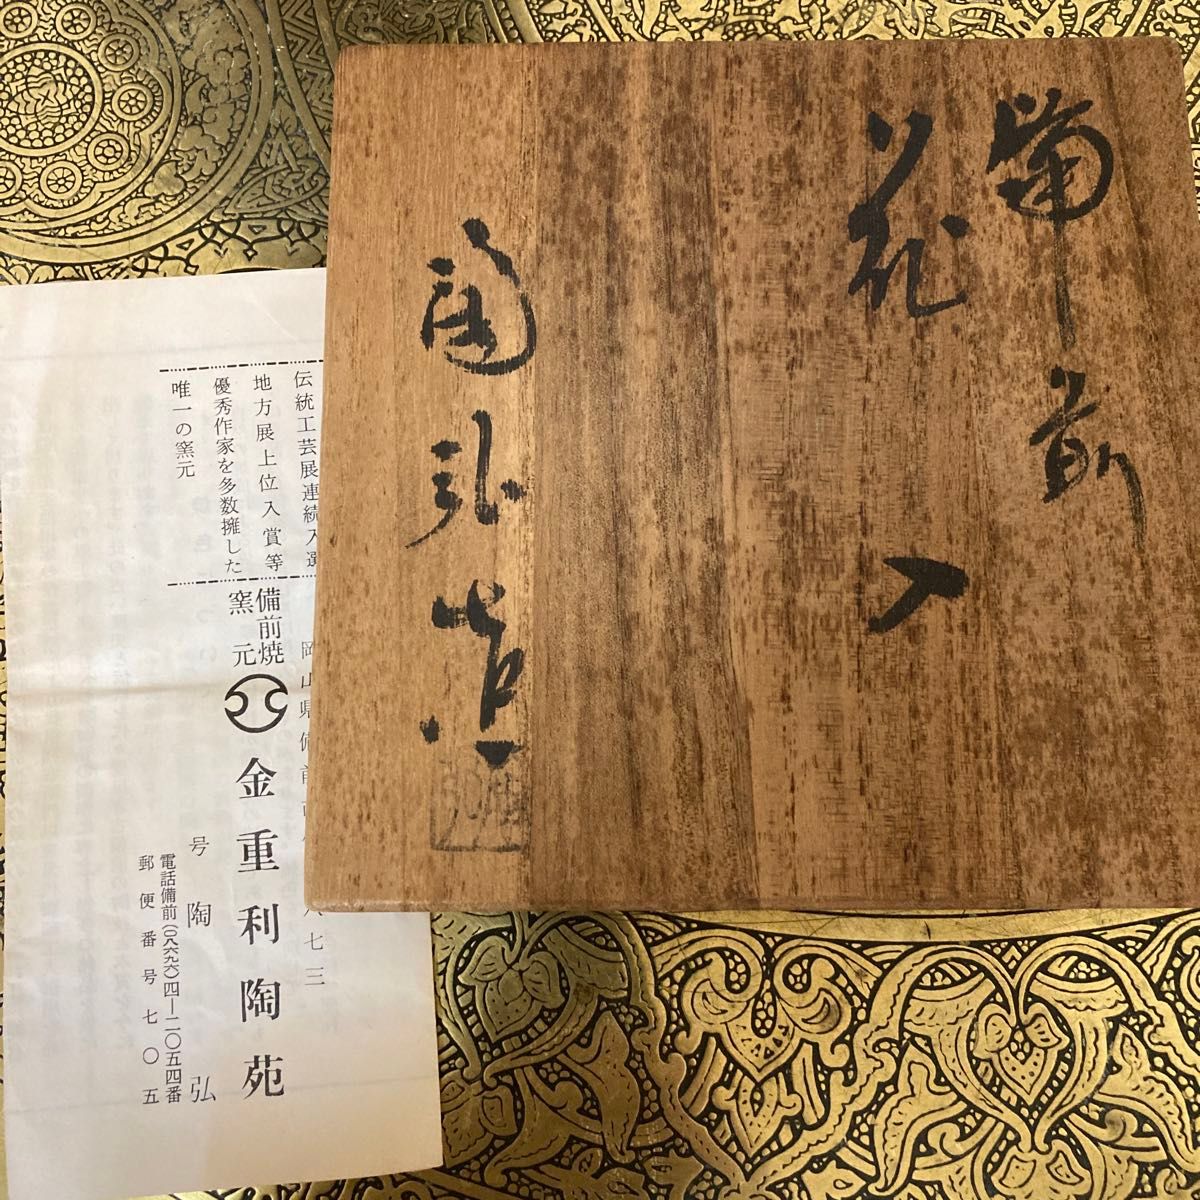 備前
花入
陶弘造
伝統工芸展連続入選
地方展上位入賞等
優秀作家を多数擁した
唯一の窯元
岡山県備前市
八七三
備前焼
窯元
金重利陶苑
号陶弘
電話備前(〇八六九六)四―二〇五四番
郵便番号七〇五